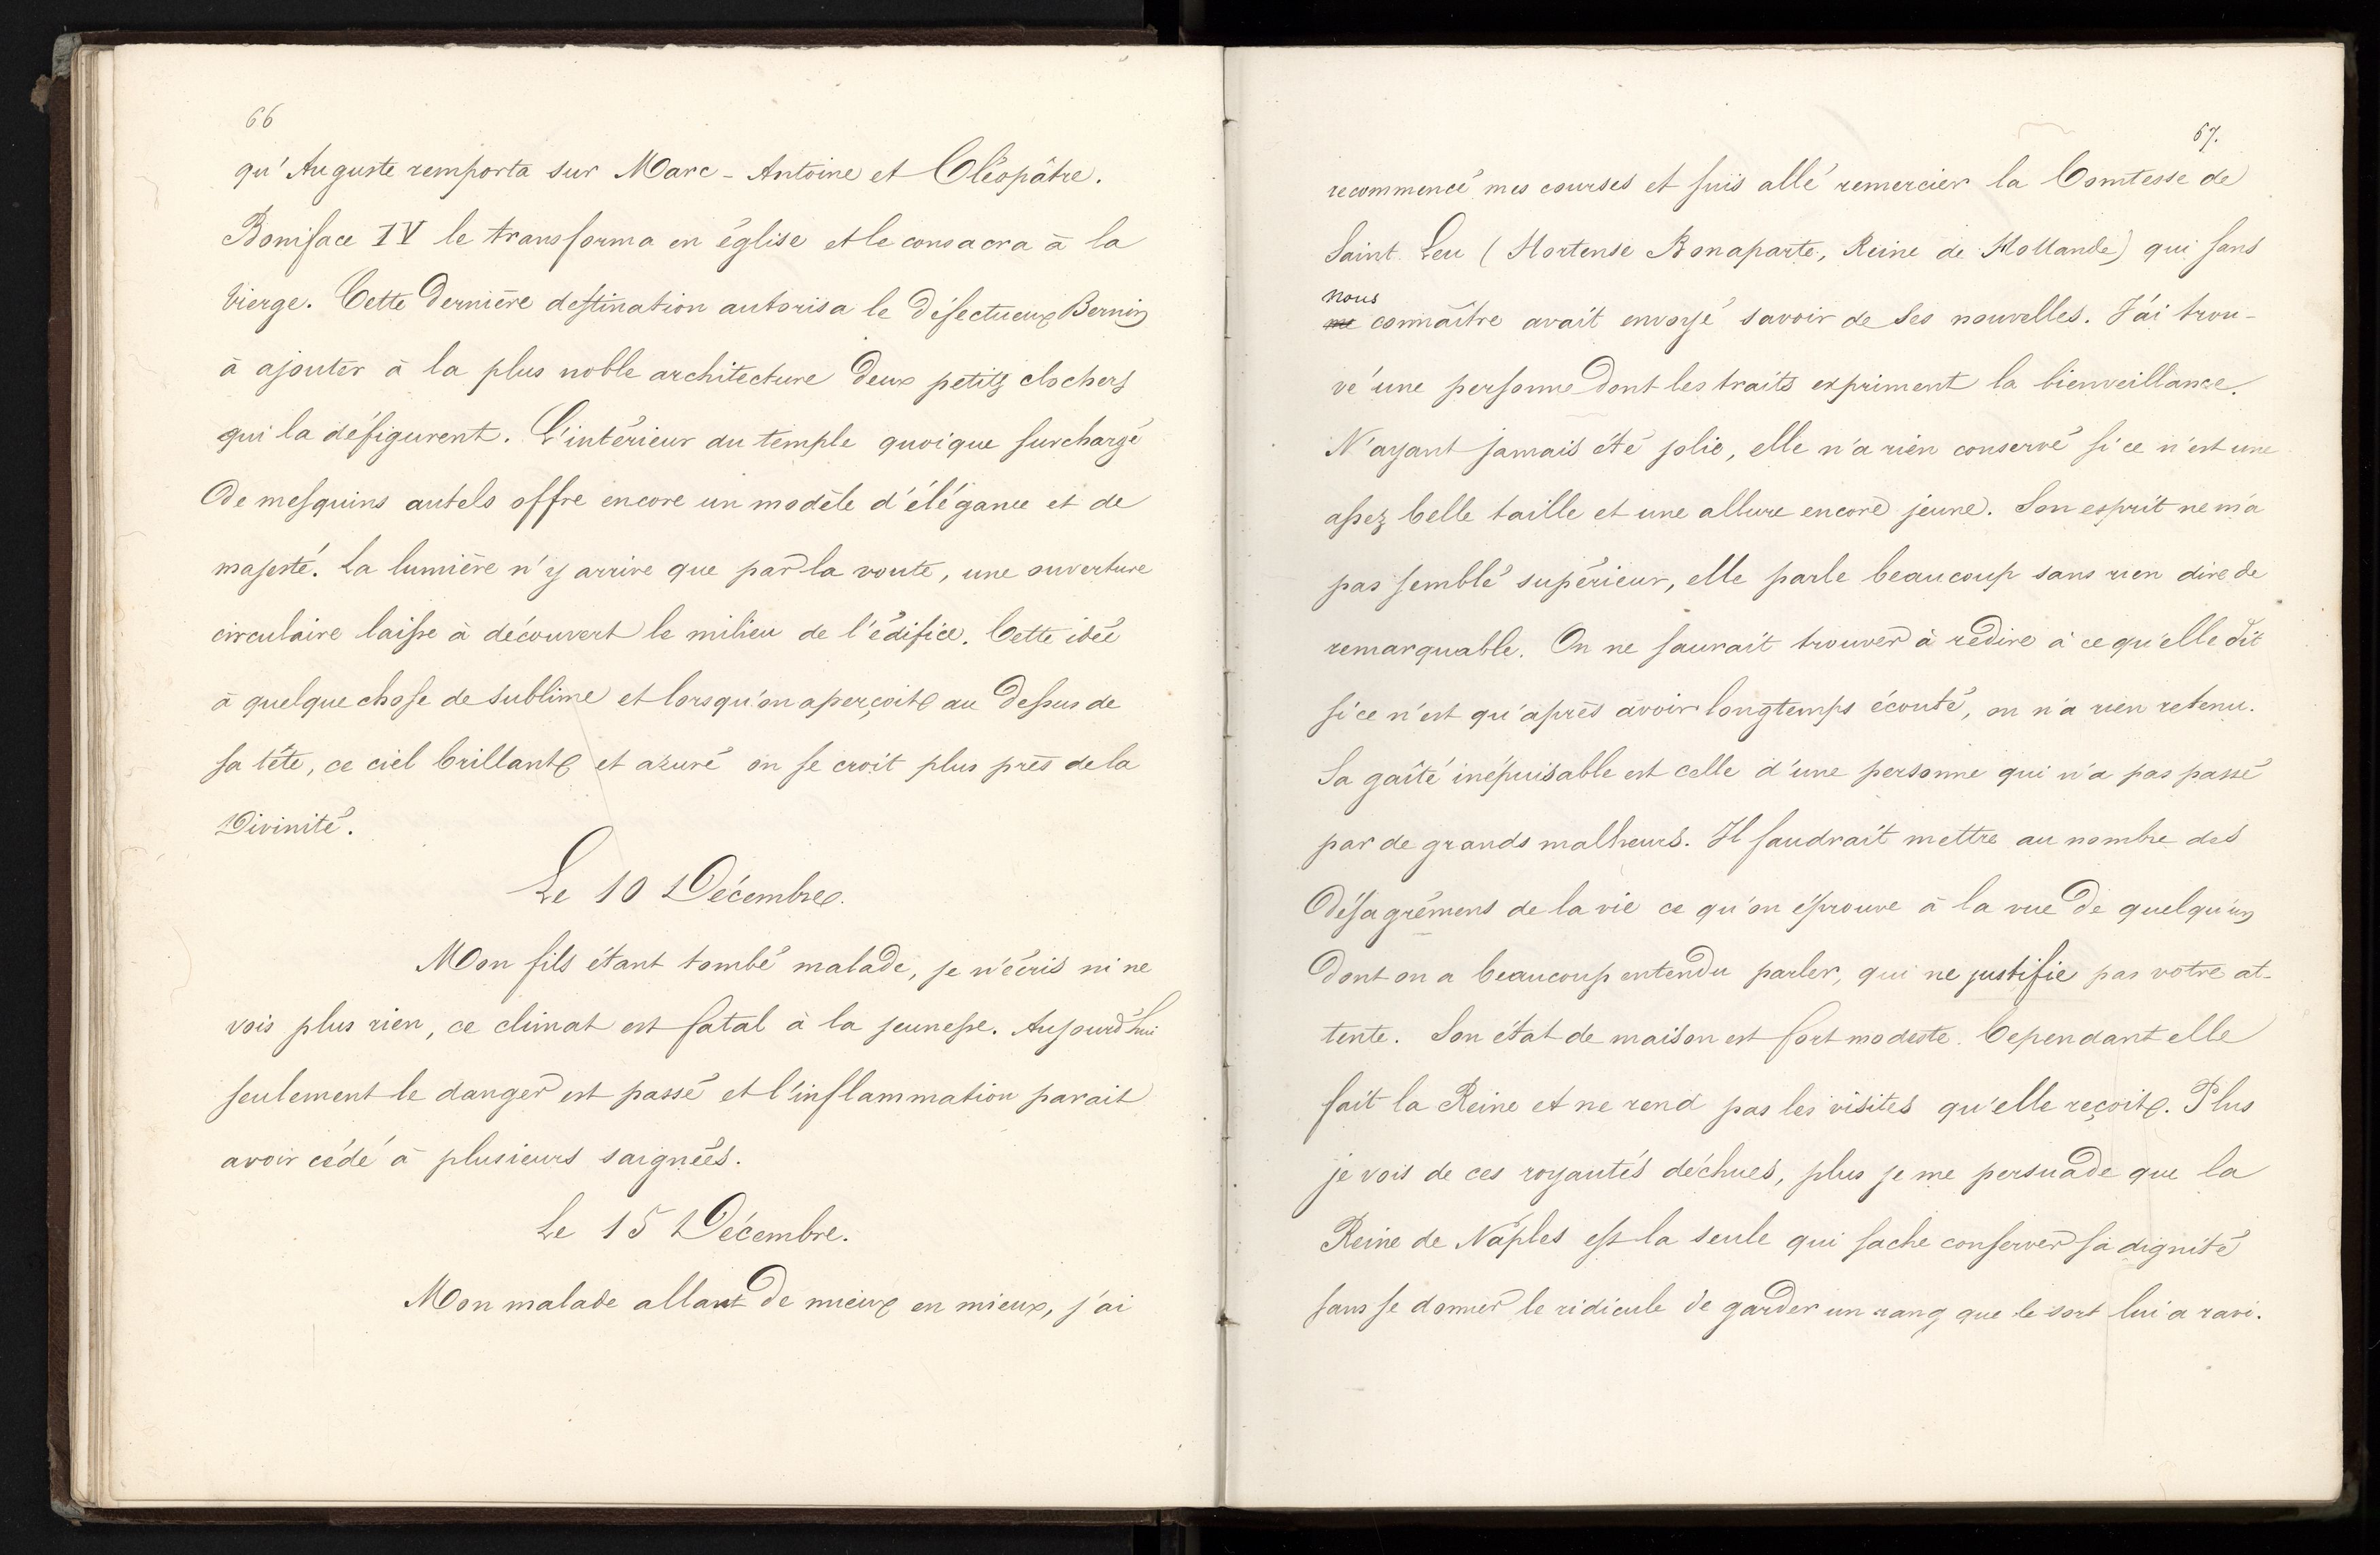 66
qu'Auguste remporta sur Marc-Antoine et Cléopâtre.
Boniface IV le transforma en église et le consacra à la
Vierge. Cette dernière destination autorisa le défectueux Bernin
à ajouter à la plus noble architecture deux petits clochers
qui la défigurent. L'intérieur du temple quoique surchargé
de mesquins autels offre encore un modèle d'élégance et de
majesté. La lumière n'y arrive que par la voute, une ouverture
circulaire laisse à découvert le milieu de l'édifice. Cette idée
à quelque chose de sublime et lorsqu'on aperçoit au dessus de
sa tête, ce ciel brillant et azuré on se croit plus près de la
Divinité.
Le 10 Décembre.
Mon fils étant tombé malade, je n'écris ni ne
vois plus rien, ce climat est fatal à la jeunesse. Aujourd'hui
seulement le danger est passé et l'inflammation parait
avoir cédé à plusieurs saignées.
Le 15 Décembre.
Mon malade allant de mieux en mieux, j'ai
67.
recommencé mes courses et suis allé remercier la Comtesse de
Saint Leu (Hortense Bonaparte, Reine de Hollande) qui sans
nous
me connaître avait envoyé savoir de ses nouvelles. J'ai trou-
vé une personne dont les traits expriment la bienveillance.
N'ayant jamais été jolie, elle n'a rien conservé si ce n'est une
assez belle taille et une allure encore jeune. Son esprit ne m'a
pas semblé supérieur, elle parle beaucoup sans rien dire de
remarquable. On ne saurait trouver à redire à ce qu'elle dit
si ce n'est qu'après avoir longtemps écouté, on n'a rien retenu.
Sa gaîté inépuisable est celle d'une personne qui n'a pas passé
par de grands malheurs. Il faudrait mettre au nombre des
désagrémens de la vie ce qu'on éprouve à la vue de quelqu'un
dont on a beaucoup entendu parler, qui ne justifie pas votre at-
tente. Son état de maison est fort modeste. Cependant elle
fait la Reine et ne rend pas les visites qu'elle reçoit. Plus
je vois de ces royautés déchues, plus je me persuade que la
Reine de Naples est la seule qui sache conserver sa dignité
sans se donner le ridicule de garder un rang que le sort lui a ravi.